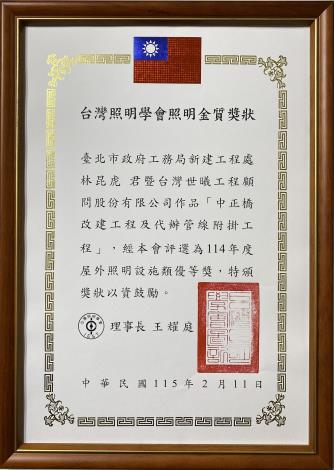 台灣照明學會照明金質獎狀
臺北市政府工務局新建工程處
林昆虎 君暨台灣世曦工程顧
問股份有限公司作品「中正橋
改建工程及代辦管線附掛工
程」，經本會評選為114年度
屋外照明設施類優等獎，特頒
獎狀以資鼓勵。
理事長 王耀庭
中華民國115年2月11日